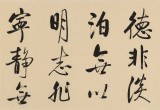 德非淡
泊無以
明志非
寧靜無